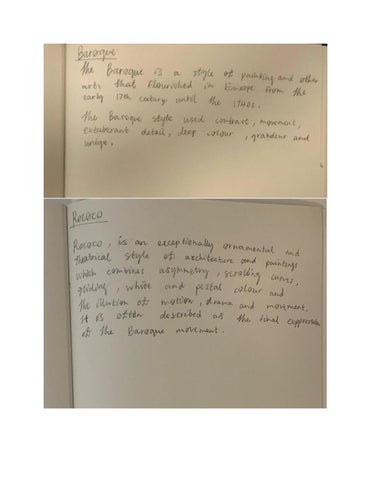 Baroque
The Baroque is a style of painting and other
arts that flourished in Europe from the
early 17th century until the 1740s.
The Baroque style used contrast, movement,
exuberant detail, deep colour, grandeur and
Rococo
Rococo, is an exceptionally ornamental and
theatrical style of architecture and paintings
which combines asymmetry, scrolling curves,
gilding, white and pastal colour and
the illution of motion, drama and movement.
it is often described as the final expression
of the Baroque movement.